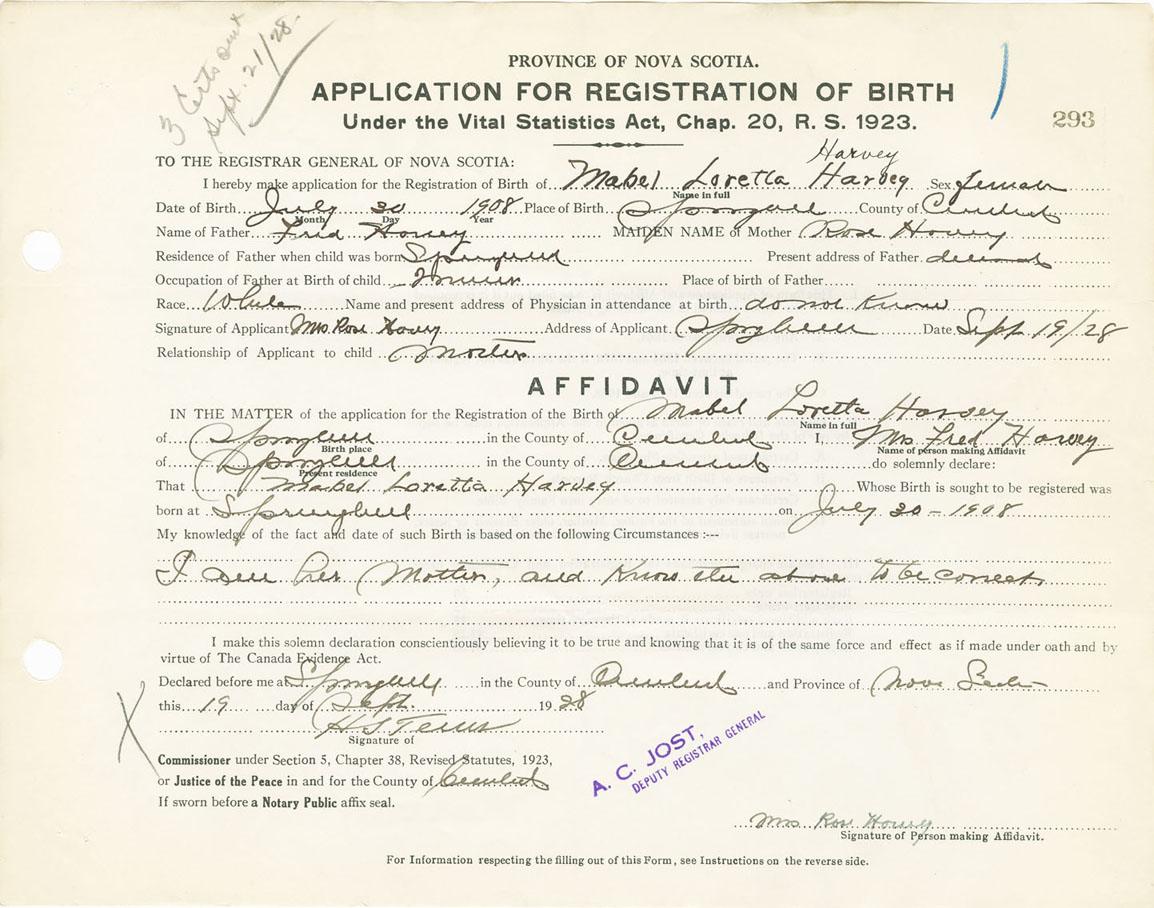 3 Certs sent
Sept. 21/28.
PROVINCE OF NOVA SCOTIA.
APPLICATION FOR REGISTRATION OF BIRTH
Under the Vital Statistics Act, Chap. 20, R. S. 1923.
293
Harvey
TO THE REGISTRAR GENERAL OF NOVA SCOTIA:
I hereby make application for the Registration of Birth of Mabel Loretta Harvey Sex female
Name in full
Date of Birth July 30 1908 Place of Birth Springhill County of Cumberland
Month Day Year
Name of Father Fred Harvey MAIDEN NAME of Mother Rose Harvey
Residence of Father when child was born Springhill Present address of Father deceased
Occupation of Father at Birth of child Place of birth of Father
Race White Name and present address of Physician in attendance at birth do not know
Signature of Applicant Mrs Rose Harvey Address of Applicant Springhill Date Sept 19/28
Relationship of Applicant to child Mother
AFFIDAVIT
IN THE MATTER of the application for the Registration of the Birth of Mabel Loretta Harvey
Name in full
of Springhill in the County of Cumberland I, Mrs Fred Harvey
Birth place Name of person making Affidavit
of Springhill in the County of Cumberland do solemnly declare:
Present residence
That Mabel Loretta Harvey Whose Birth is sought to be registered was
born at Springhill on July 30 - 1908
My knowledge of the fact and date of such Birth is based on the following Circumstances :---
I am her Mother, and Know the above to be correct
I make this solemn declaration conscientiously believing it to be true and knowing that it is of the same force and effect as if made under oath and by
virtue of The Canada Evidence Act.
Declared before me at Springhill in the County of Cumberland and Province of Nova Scotia
this 19 day of Sept. 1928
H S
Signature of
Commissioner under Section 5, Chapter 38, Revised Statutes, 1923,
or Justice of the Peace in and for the County of Cumberland
If sworn before a Notary Public affix seal.
A. C. JOST,
DEPUTY REGISTRAR GENERAL
Mrs Rose Harvey
Signature of Person making Affidavit.
For Information respecting the filling out of this Form, see Instructions on the reverse side.